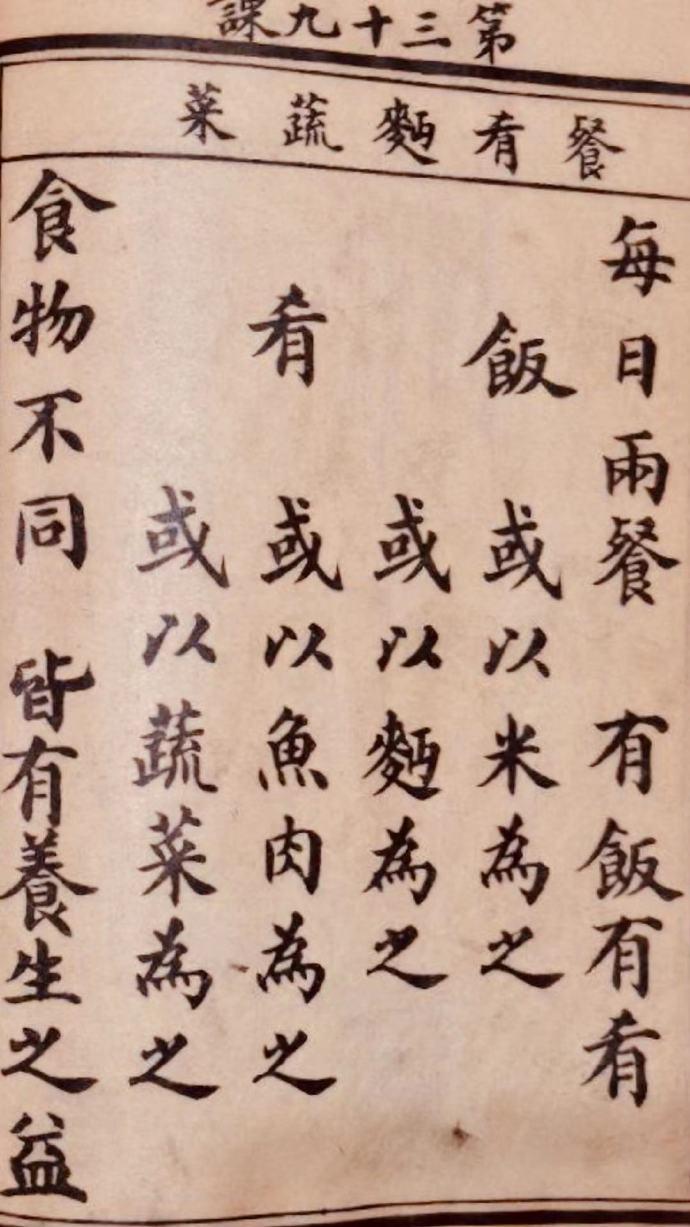 第三十九課
餐肴麪蔬菜
每日兩餐 有飯有肴
飯 或以米為之
或以麪為之
肴 或以魚肉為之
或以蔬菜為之
食物不同 皆有養生之益